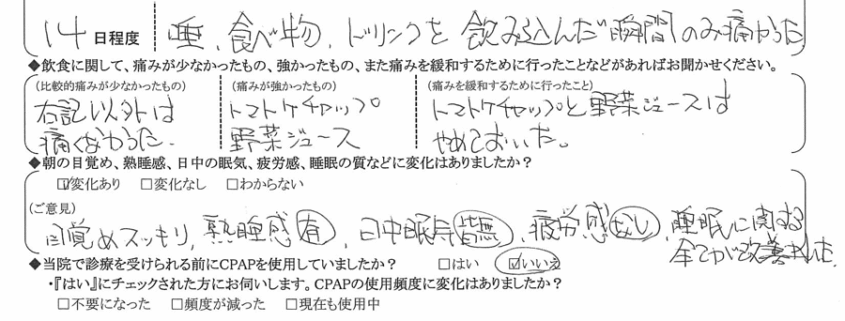 14日程度 唾、食べ物、ドリンクを飲み込んだ瞬間のみ痛かった
◆飲食に関して、痛みが少なかったもの、強かったもの、また痛みを緩和するために行ったことなどがあればお聞かせください。
(比較的痛みが少なかったもの) (痛みが強かったもの) (痛みを緩和するために行ったこと)
右記以外は トマトケチャップ トマトケチャップと野菜ジュースは
痛くなかった. 野菜ジュース やめておいた。
◆朝の目覚め、熟睡感、日中の眠気、疲労感、睡眠の質などに変化はありましたか?
☑変化あり □変化なし □わからない
(ご意見)
目覚めスッキリ, 熟睡感有, 日中眠気皆無, 疲労感なし, 睡眠に関する
全てが改善された.
◆当院で診療を受けられる前にCPAPを使用していましたか? □はい ☑いいえ
・『はい』にチェックされた方にお伺いします。CPAPの使用頻度に変化はありましたか?
□不要になった □頻度が減った □現在も使用中